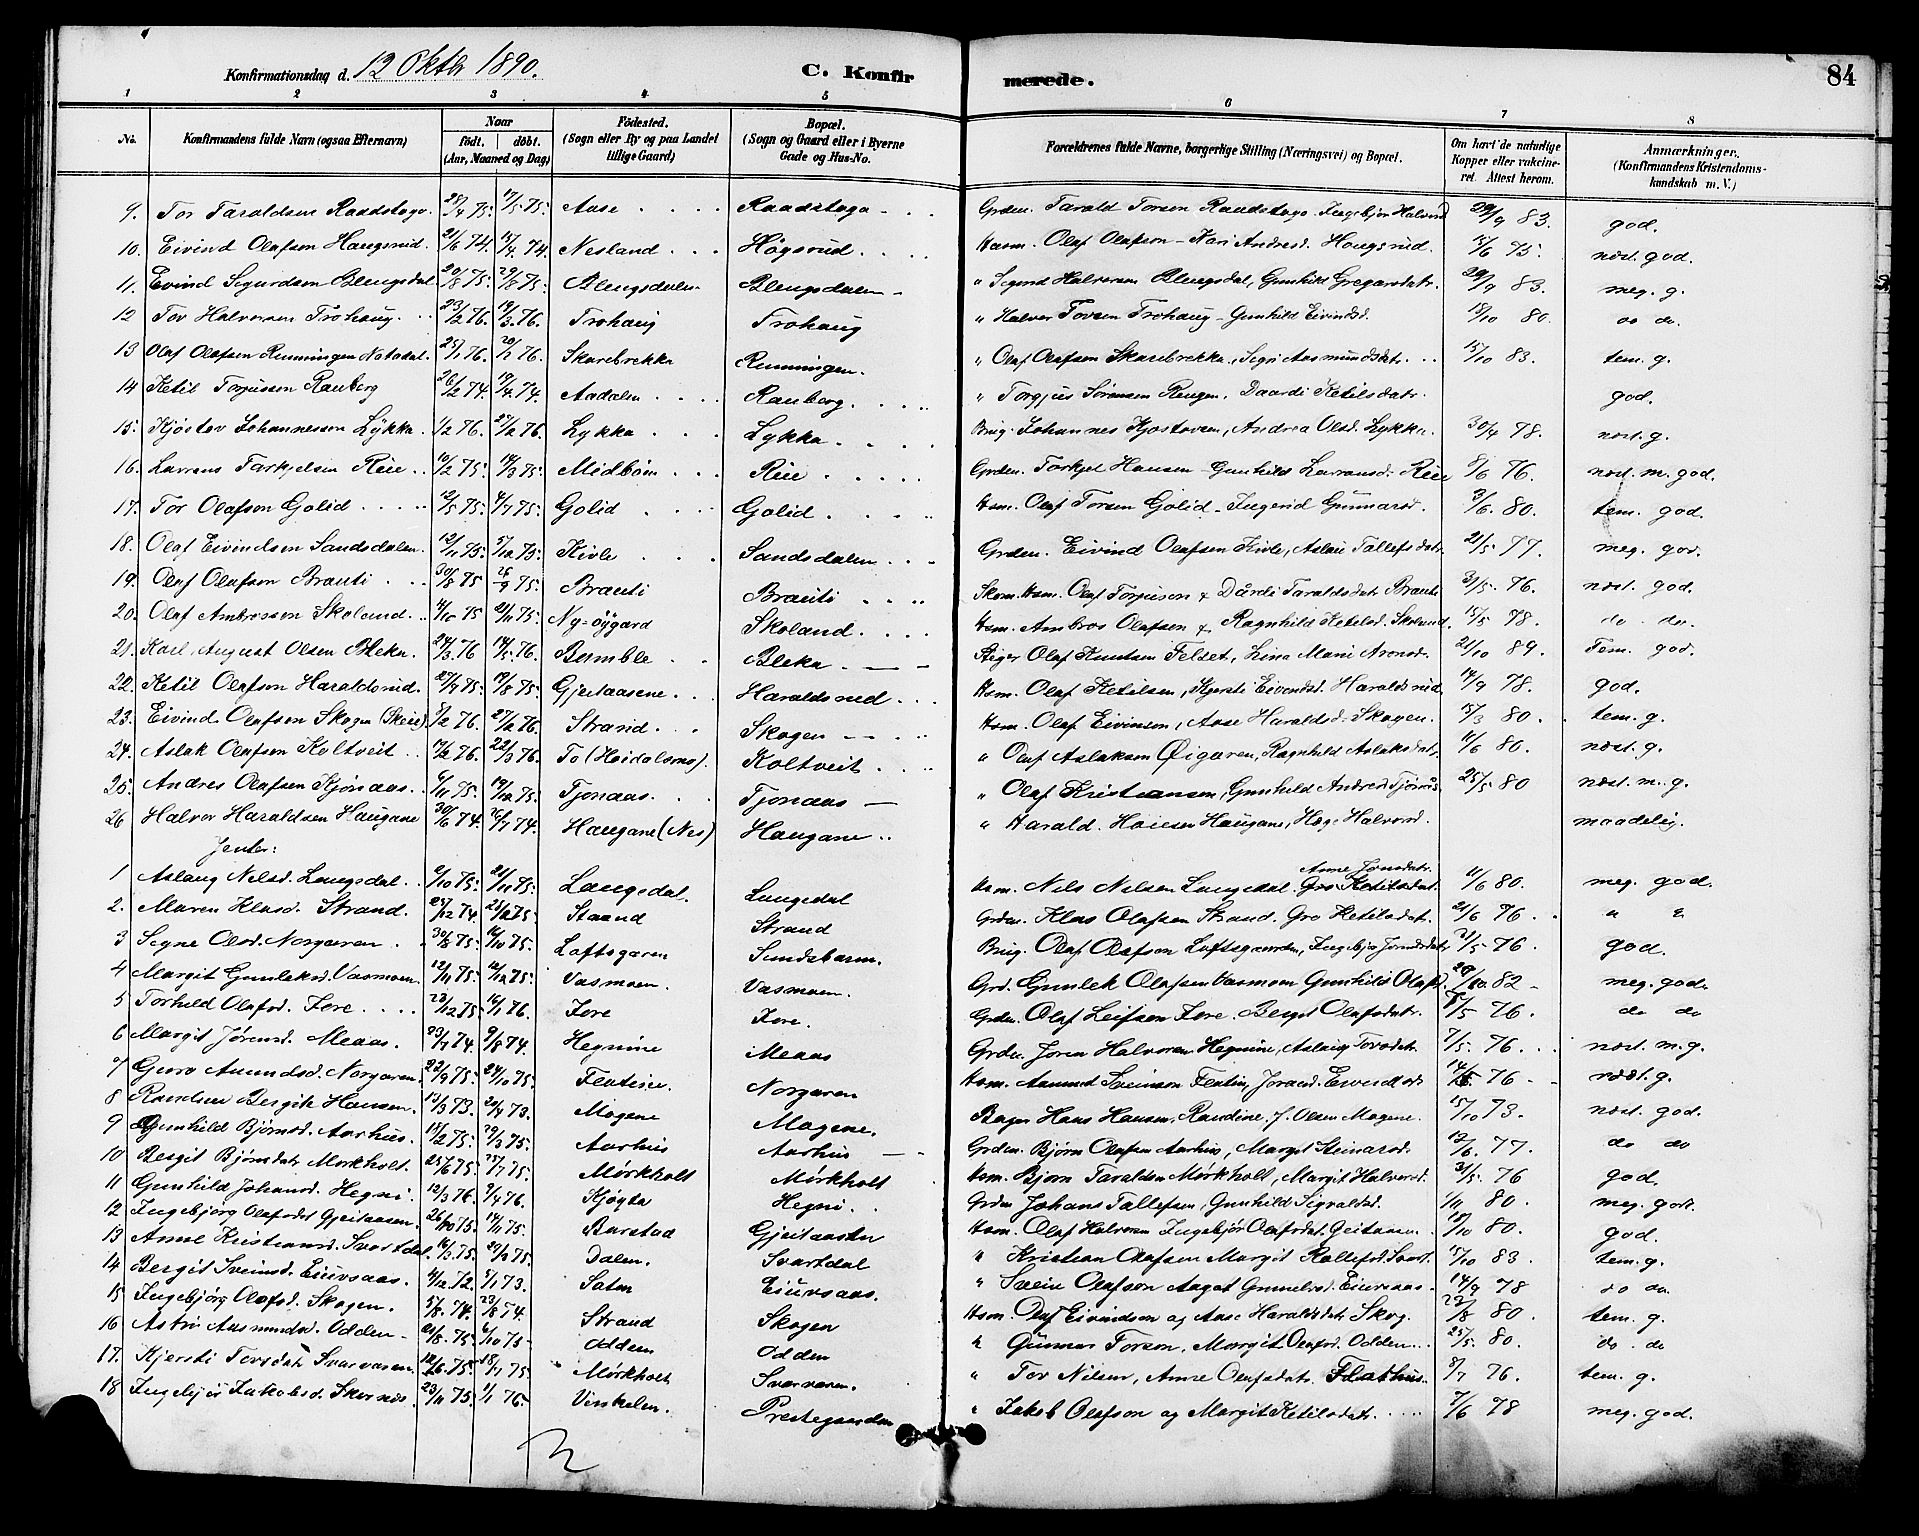 Konfirmationsdag d. 12 Oktbr 1890. C. Konfirmerede. 84
1 2 3 4 5 6 7 8
No. Konfirmandens fulde Navn (ogsaa Efternavn) Naar født. døbt. (Aar, Maaned og Dag) Fødested. (Sogn eller By og paa Landet tillige Gaard) Bopæl. (Sogn og Gaard eller i Byerne Gade og Hus-No. Forældrenes fulde Navne, borgerlige Stilling (Næringsvei) og Bopæl. Om havt de naturlige Kopper eller vakcineret. Attest herom. Anmærkninger. (Konfirmandens Kristendomskundskab m. V.)
9. Tor Taraldsen Raadstoga 28/4 75. 17/5 75. Aase Raadstoga Grden. Tarald Torsen Raadstoga Ingebjør Halvorsd 29/9 83. god.
10. Eivind Olafson Haugsrud. 21/6 74. 74. Nesland Høgsrud Husm. Olaf Olafson - Kari Andresd. Haugsrud. 15/6 75. nost. god.
11. Eivind Sigurdsen Blengsdal 20/8 75. 29/8 75. Blengsdalen Blengsdalen " Sigurd Halvorsen Blengsdal, Gunhild Gregarsdatr. 29/9 83. meg. g.
12 Tov Halvorsen Trohaug. 23/2 76. 19/3 76. Trohaug Trohaug " Halvor Tovsen Trohaug - Gunhild Eivindsd. 13/10 80. do do.
13 Olaf Olafsen Runningen Natadal. 25/1 76. 20/2 76. Skarebrekka Runningen. " Olaf Olafsen Skarebrekka, Sigri Aasmundsdatr. 15/10 83. tem. g.
14 Ketil Torjussen Rauberg 26/2 74. 19/4 74. Aadalen Rauberg. " Torgjus Sørensen Rengen, Daardi Ketilsdatr. god.
15. Kjøstov Johannessen Lykka. 1/2 76. 27/2 76. Lykka Lykka Brug. Johannes Kjøstovsen, Andrea Olsd. Lykka. 30/4 78. nost. g.
16. Lavrans Tarkjelsen Rue 10/2 75. 14/3 75. Midbøen Rue Grden. Torkjel Hansen - Gunhild Lavransd. Rue 8/6 76. nost. m. god.
17. Tor Olafson Golid 12/5 75. 4/7 75. Golid Golid Husm. Olaf Torsen Golid - Ingerid Gunnarsd. 3/6. 80. tem. god.
18. Olaf Eivindsen Sandsdalen. 12/11 75. 5/12 75. Kivle Sandsdalen Grden. Eivind Olafsen Kivle, Aslau Tallefsdatr 21/5 77. meg. god.
19. Olaf Olafson Brauti 30/8 75 26/9 75. Brauti Brauti Skom. Husm. Olaf Torjuson & Dårdi Taraldsdatr Brauti 31/5. 76. nost. god.
20. Olaf Ambrossen Skoland. 4/10 75 21/11 75. Ny-øygard Skoland. Husm. Ambros Olafson & Ragnhild Ketilsd. Skoland. 15/5 78. do. do.
21. Karl August Olsen Bleka. 24/3 76 14/5. 76. Bamble Bleka Stiger Olaf Knutsen Felset, Lina Marie Aronsd. 21/10 89. Tem. god.
22. Ketil Olafson Haraldsrud. 27/7 75. 19/8 75. Gjeitaasene Haraldsrud Husm. Olaf Ketilsen, Kjersti Eivendsd. Haraldsrud. 14/9 78. god.
23. Eivind Olafsen Skogen (Skeie). 5/2 76. 27/2 76. Strand Skogen Husm. Olaf Eivinsen, Aase Haraldsd. Skogen. 15/3 80. tem. g.
24. Aslak Olafson Koltveit 17/2 76. 22/3 76. To (Heidalsmo). Koltveit " Olaf Aslaksen Øigaren, Ragnhild Aslaksdatr 11/6 80. nost. g.
25. Andres Olafsen Kjønaas 6/11 75. 19/12 75. Tjønaas. Tjonaas " Olaf Kristiansen, Gunhild Andresd Tjønås. 25/5 80 nost. m. g.
26 Halvor Haraldsen Haugane 30/6 74. 26/7 74. Haugane (Nes) Haugane " Harald Haiesen Haugane, Hæge Halvorsd. maadelig.
Jenter:
1 Aslaug Nilsd. Langsdal 9/10 75. 21/11 75. Langsdal. Langedal Husm. Nils Nilsen Langedal Anne Jonsdatr. 11/6 80. meg. god.
2. Maren Klasd. Strand. 25/12 74. 75. Straand Strand Grden. Klas Olafsen Strand. Gro Ketilsdatr. 21/6 76. " "
3 Signe Olsd. Norgaren 30/8 75. 10/10 75. Loftsgaren Sundsbarm. Brug. Olaf Olafson Loftsgaarden, Ingebjør Jørundsdatr 21/5 76. god.
4 Margit Gunleksd. Vasmoen. 12/11 75. 12/12 75. Vasmoen. Vasmoen. Grd. Gunlek Olafsen Vasmoen Gunhild Olafsd. 20/10. 82 meg. god.
5 Torhild Olafsd. Fore. 28/12 75. 16/1 76. Fore Fore. Grden. Olaf Leifsen Fore. Bergit Olafsdatr. 76. do do
6 Margit Jørensd. Meaas. 23/7 74. 9/8 74. Hegnine Meaas Grden. Jøren Halvorsen Hegnine, Aslaug Tovsdatr. 7/5. 76. nost. m. g.
7 Guro Aamundsd. Norgaren. 22/9 75. 24/10 75. Flatin Norgaren Husm. Aamund Sveinson Flatin, Joraand Eivindsd. 76 nost. g.
8 Randine Bergit Hansen. 13/3 73. 20/4 73. Mogene Mogene. Bager Hans Hansen, Randine, f. Olsen Mogene. 15/10 73. nost. god.
9 Gunhild Bjørnsd. Aarhus. 13/2 75. 29/3 75. Aarhus Aarhus Grden. Bjørn Olafsen Aarhus, Margit Steinarsd. 13/6. 77. do do
10 Bergit Bjørnsdatr Mørkholt. 25/6 75. 25/7 75. Mørkholt Mørkholt Husm. Bjørn Taraldsen Mørkholt, Margit Halvorsd. 31/5. 76 god.
11 Gunhild Johansd. Hegni. 12/3 76. 2/4 76. Kjøgta Hegni. Grden Johans Tallefsen, Gunhild Sigvaldsd. 1/11 80. meg. god.
12 Ingebjørg Olafsdtr Gjeitaasen. 26/10 75. 14/11 75. Barstad Gjeitaasen Husm. Olaf Halvorsen Ingebjør Olafsdat. Geitaasen. 15/10 80. god.
13 Anne Kristiansd. Svartdal. 16/3 75. 75. Dalen. Svartdal " Kristian Olafsen Margit Rollefsd Svart. 15/10 83. tem. g.
14 Bergit Sveinsd. Eiuvsaas. 4/12 72. 6/1 73. Satm Eiuvsaas. " Svein Olafson Aagot Gunulvsd. Eiuvsaas 14/9 78 do do
15 Ingebjørg Olafsd. Skogen. 5/8. 74. 23/8 74. Strand Skogen Husm. Olaf Eivindsen og Aase Haraldsdatr Skog. 23/8 80. tem. g.
16 Astri Aasmundsd. Odden 21/8. 75. 6/10 75 Odden Odden " Gunnar Torson, Margit Olafsd. Odden 25/5. 80. do. do
17. Kjersti Tovsdatr Svarvaren. 12/6. 75. 18/7 75. Mørkholt Svarvaren. " Tov Nilsen, Anne Olafsdatr. Flathus. 8/7 76. tem. g.
18 Ingebjør Jakobsd. Skornes. 23/11 75. 1/1 76. Vinkelen. Prestegaarden " Jakob Olafson og Margit Ketilsdatr. 7/6 78 meg. god.